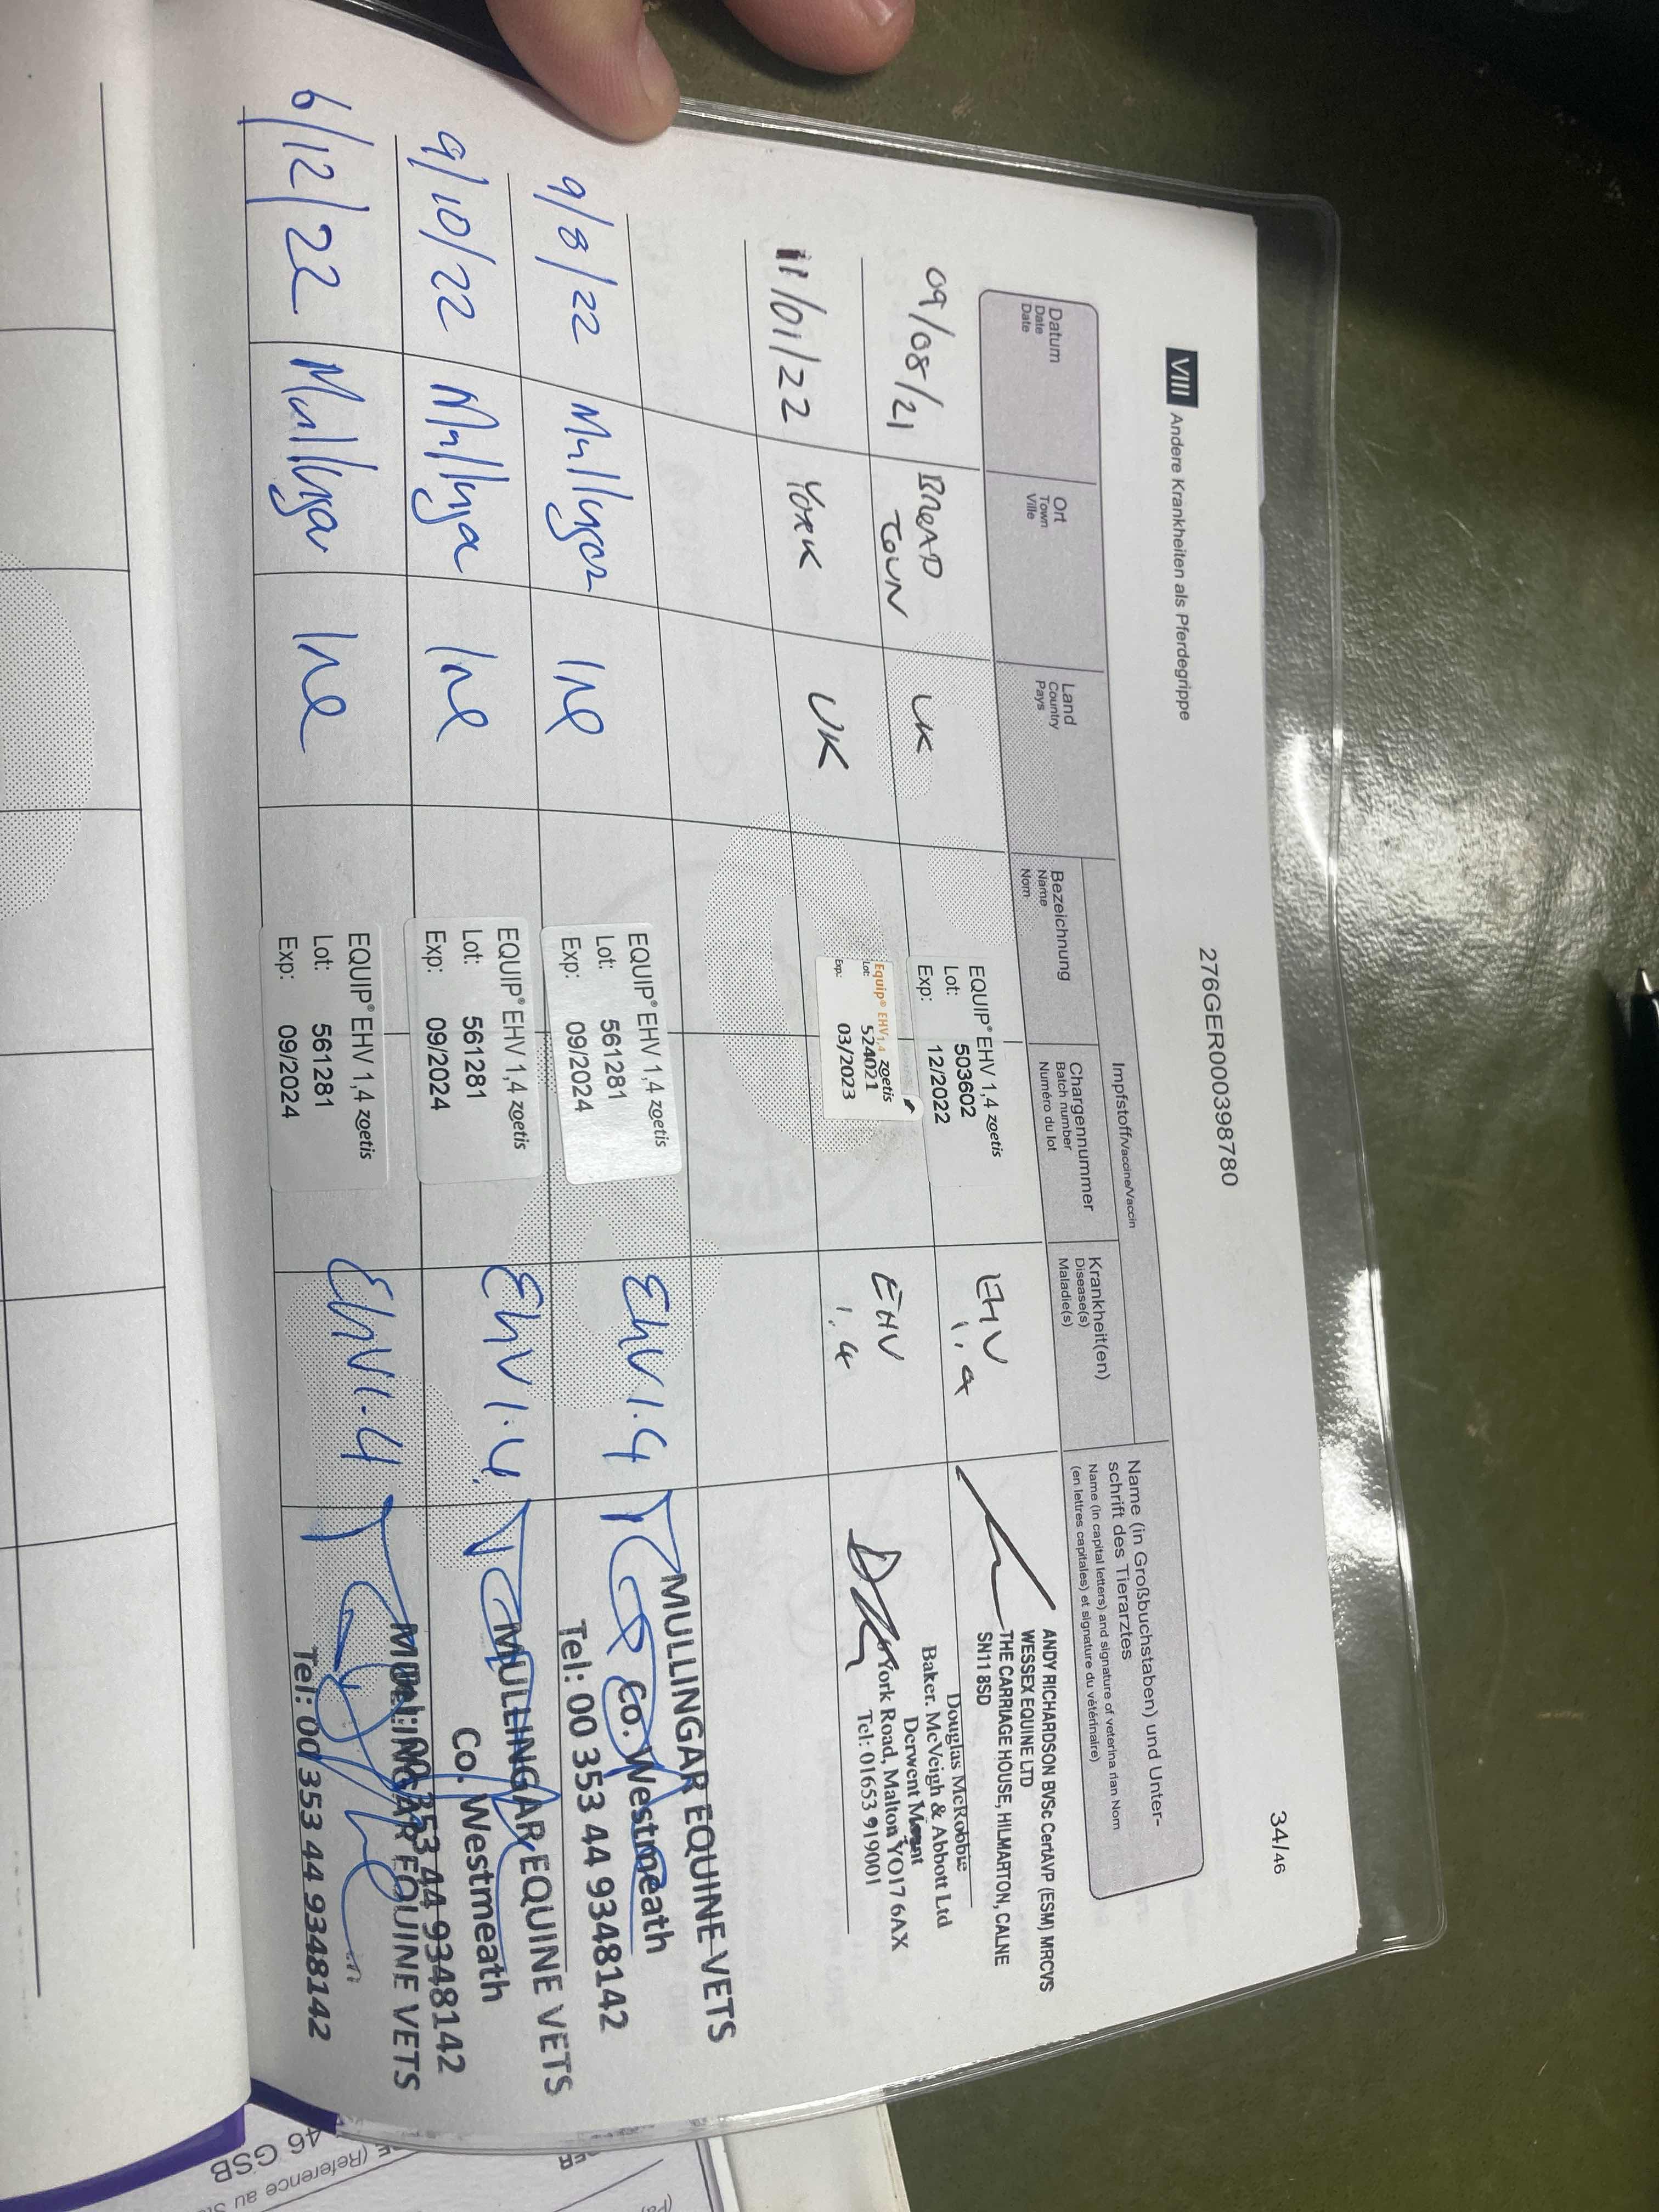 34/46
276GER000398780
VIII Andere Krankheiten als Pferdegrippe
Datum
Date
Date
Ort
Town
Ville
Land
Country
Pays
Impfstoff/Vaccine/Vaccin
Bezeichnung
Name
Nom
Chargennummer
Batch number
Numéro du lot
Krankheit(en)
Disease(s)
Maladie(s)
Name (in Großbuchstaben) und Unter-
schrift des Tierarztes
Name (in capital letters) and signature of veterina rian Nom
(en lettres capitales) et signature du vétérinaire)
09/08/21
BROAD
TOWN
UK
EQUIP® EHV 1,4 zoetis
Lot: 503602
Exp: 12/2022
EHV
1.4
ANDY RICHARDSON BVSc CertAVP (ESM) MRCVS
WESSEX EQUINE LTD
THE CARRIAGE HOUSE, HILMARTON, CALNE
SN11 8SD
11/01/22
YORK
UK
Equip® EHV1,4 zoetis
Lot: 524021
Exp: 03/2023
EHV
1.4
Douglas McRobbie
Baker. McVeigh & Abbott Ltd
Derwent Mount
York Road, Malton YO17 6AX
Tel: 01653 919001
9/8/22
Mullingar
Ire
EQUIP® EHV 1,4 zoetis
Lot: 561281
Exp: 09/2024
EHV 1.4
MULLINGAR EQUINE VETS
Co. Westmeath
Tel: 00 353 44 9348142
9/10/22
Mullingar
Ire
EQUIP® EHV 1,4 zoetis
Lot: 561281
Exp: 09/2024
EHV 1.4
MULLINGAR EQUINE VETS
Co. Westmeath
Tel: 00 353 44 9348142
6/12/22
Mullingar
Ire
EQUIP® EHV 1,4 zoetis
Lot: 561281
Exp: 09/2024
EHV 1.4
MULLINGAR EQUINE VETS
Tel: 00 353 44 9348142
46 GSB